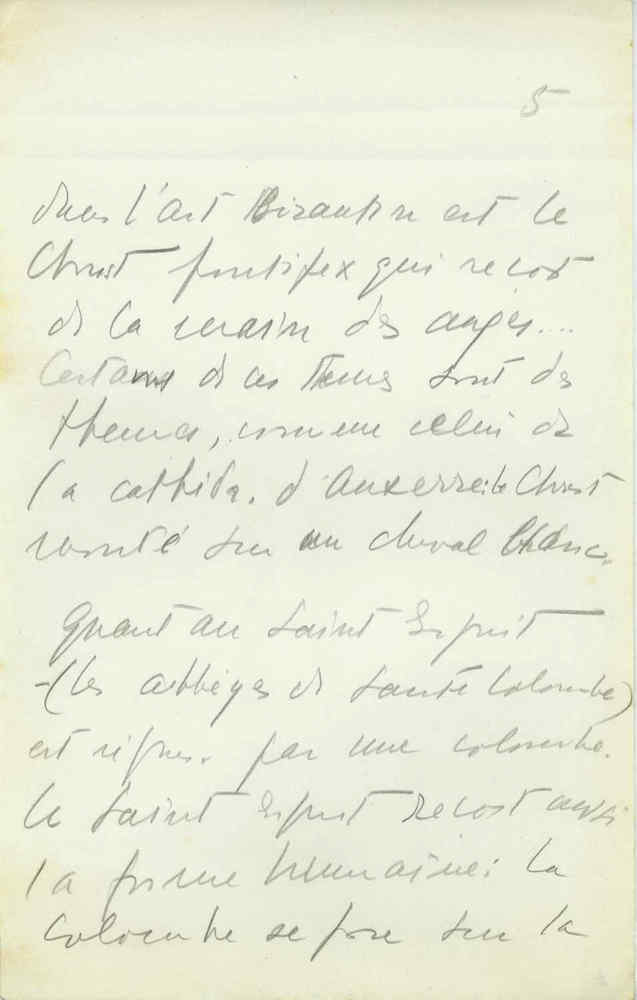 5
dans l'art Bizantin est le
Christ pontifex qui recoit
de la main des anges...
Certains de ces themes sont des
themes, comme celui de
la cathédr. d'Auxerre: le Christ
monté sur un cheval blanc.
Quant au Saint Esprit
-(les abbayes de Sainte Colombe)
est répres. par une colombe.
le Saint Esprit recoit aussi
la forme humaine: la
colombe se pose sur la